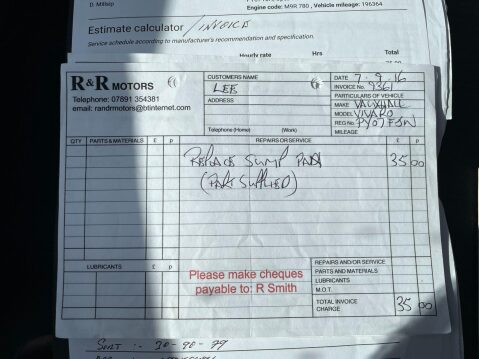 D. Millsip
Engine code: M9R 780 , Vehicle mileage: 196364
Estimate calculator / INVOICE
Service schedule according to manufacturer's recommendation and specification.
Hourly rate Hrs Total
R&R MOTORS
Telephone: 07891 354381
email: randrmotors@btinternet.com
CUSTOMERS NAME
LEE
ADDRESS
Telephone (Home) (Work)
DATE 7.9.16
INVOICE No. 9361
PARTICULARS OF VEHICLE
MAKE VAUXHALL
MODEL VIVARO
REG No. PY07FJN
MILEAGE
QTY PARTS & MATERIALS £ p REPAIRS OR SERVICE £ p
REPLACE SUMP PAN 35 00
(PART SUPPLIED)
LUBRICANTS £ p
Please make cheques
payable to: R Smith
REPAIRS AND/OR SERVICE
PARTS AND MATERIALS
LUBRICANTS
M.O.T.
TOTAL INVOICE
CHARGE 35 00
SORT :- 30-90-79